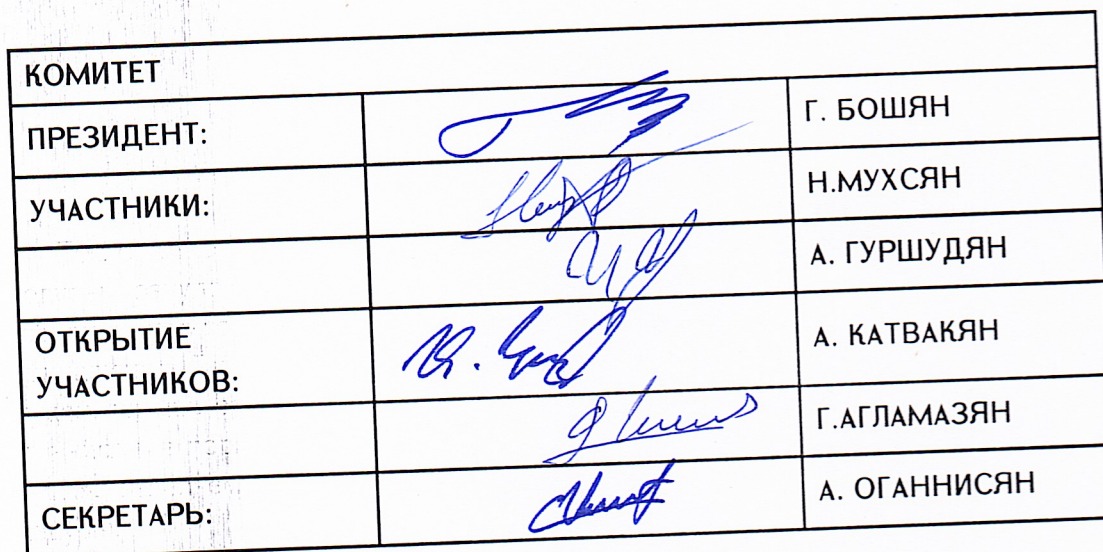 КОМИТЕТ
ПРЕЗИДЕНТ: Г. БОШЯН
УЧАСТНИКИ: Н.МУХСЯН
А. ГУРШУДЯН
ОТКРЫТИЕ
УЧАСТНИКОВ: А. КАТВАКЯН
Г.АГЛАМАЗЯН
СЕКРЕТАРЬ: А. ОГАННИСЯН